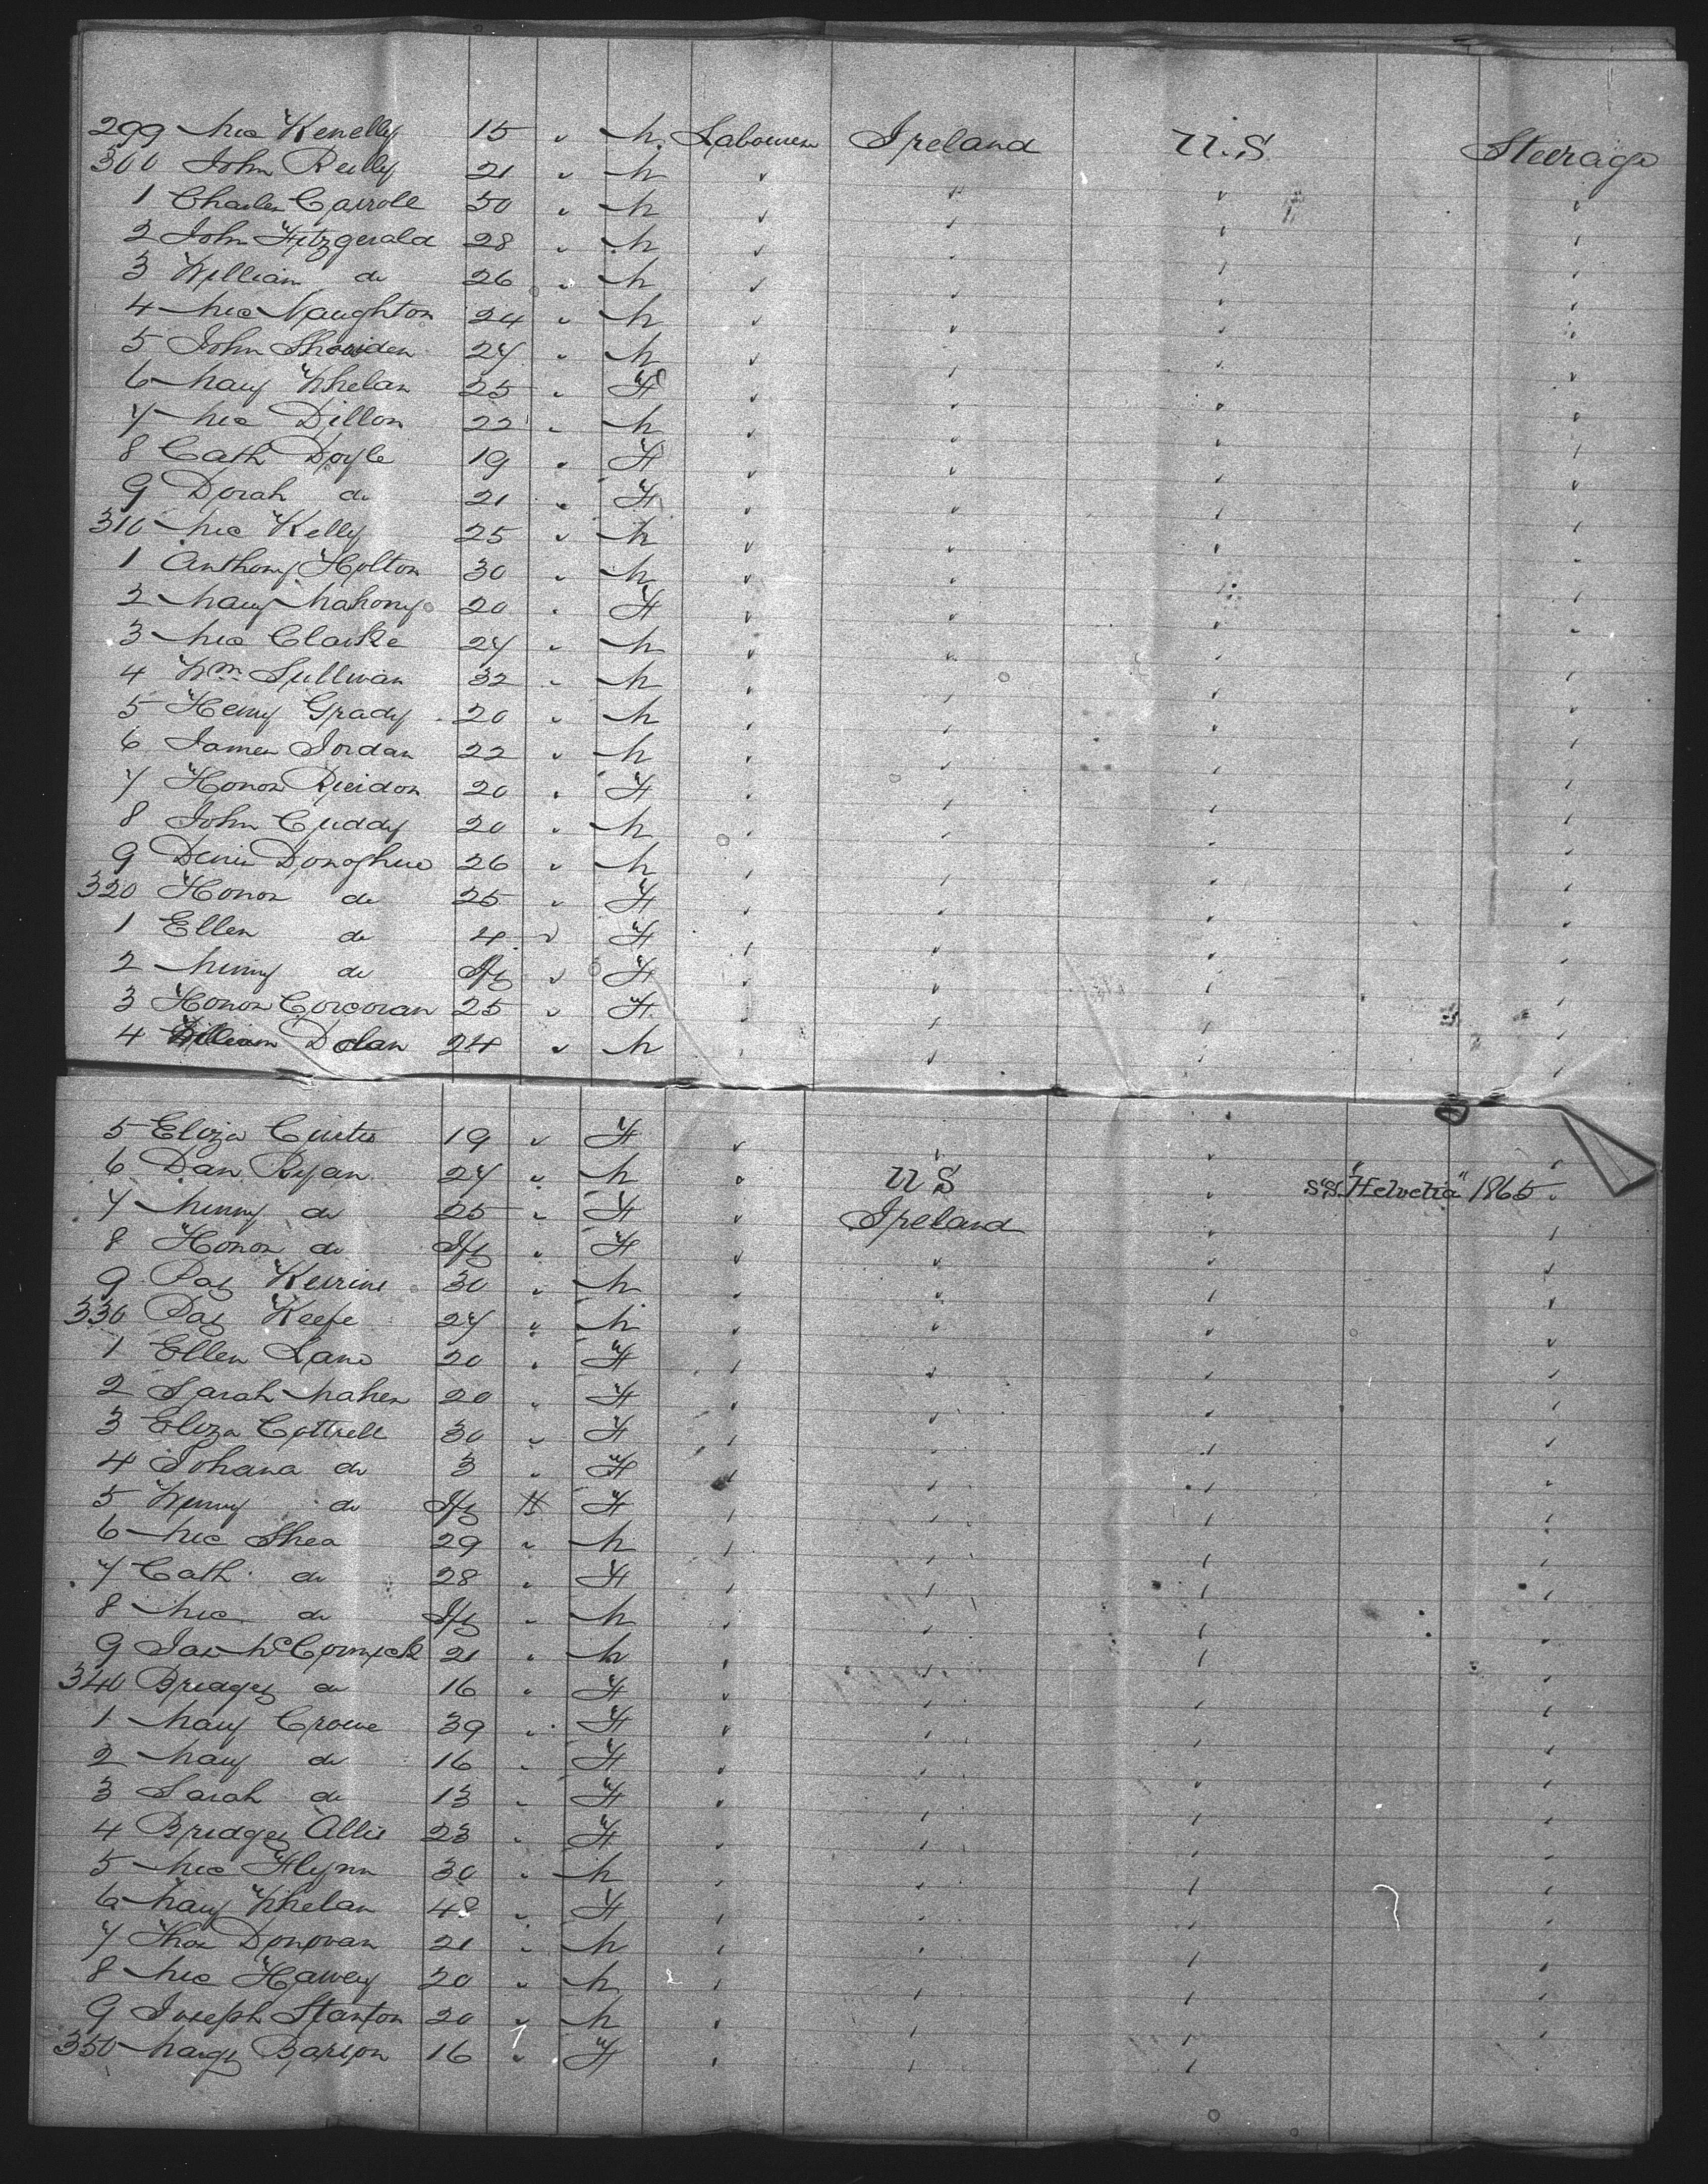 299 Mic Kenelly 15 " M Labourer Ireland U.S Steerage
300 John Reilly 21 " M " " " "
1 Charles Carroll 50 " M " " " "
2 John Fitzgerald 28 " M " " " "
3 William do 26 " M " " " "
4 Mic Naughton 24 " M " " " "
5 John 27 " M " " " "
6 Mary Whelan 25 " F " " " "
7 Mic Dillon 22 " M " " " "
8 Cath Doyle 19 " F " " " "
9 Dorah do 21 " F " " " "
310 Mic Kelly 25 " M " " " "
1 Anthony Holton 30 " M " " " "
2 Mary Mahony 20 " F " " " "
3 Mic Clarke 27 " M " " " "
4 Wm Sullivan 32 " M " " " "
5 Henry Grady 20 " M " " " "
6 James Jordan 22 " M " " " "
7 Honor 20 " F " " " "
8 John Cuddy 20 " M " " " "
9 Denis Donoghue 26 " M " " " "
320 Honor do 25 " F " " " "
1 Ellen do 4 " F " " " "
2 Minny do Inft " F " " " "
3 Honor Corcoran 25 " F " " " "
4 William Dolan 24 " M " " " "
5 Eliza Curtis 19 " F " " " "
6 Dan Ryan 27 " M " U S " S.S. "Helvetia" 1865 "
7 Minny do 25 " F " Ireland " "
8 Honor do Inft " F " " " "
9 Pat 30 " M " " " "
330 Pat Keefe 27 " M " " " "
1 Ellen Lane 20 " F " " " "
2 Sarah Maher 20 " F " " " "
3 Eliza Cottrell 30 " F " " " "
4 Johana do 3 " F " " " "
5 Winny do Inft " F " " " "
6 Mic Shea 29 " M " " " "
7 Cath do 28 " F " " " "
8 Mic do Inft " M " " " "
9 Jas McCormick 21 " M " " " "
340 Bridget do 16 " F " " " "
1 Mary Crowe 39 " F " " " "
2 Mary do 16 " F " " " "
3 Sarah do 13 " F " " " "
4 Bridget Allis 23 " F " " " "
5 Mic Flynn 30 " M " " " "
6 Mary Whelan 48 " F " " " "
7 Thos Donovan 21 " M " " " "
8 Mic Harvey 20 " M " " " "
9 Joseph Stanton 20 " M " " " "
350 Margt 16 " F " " " "